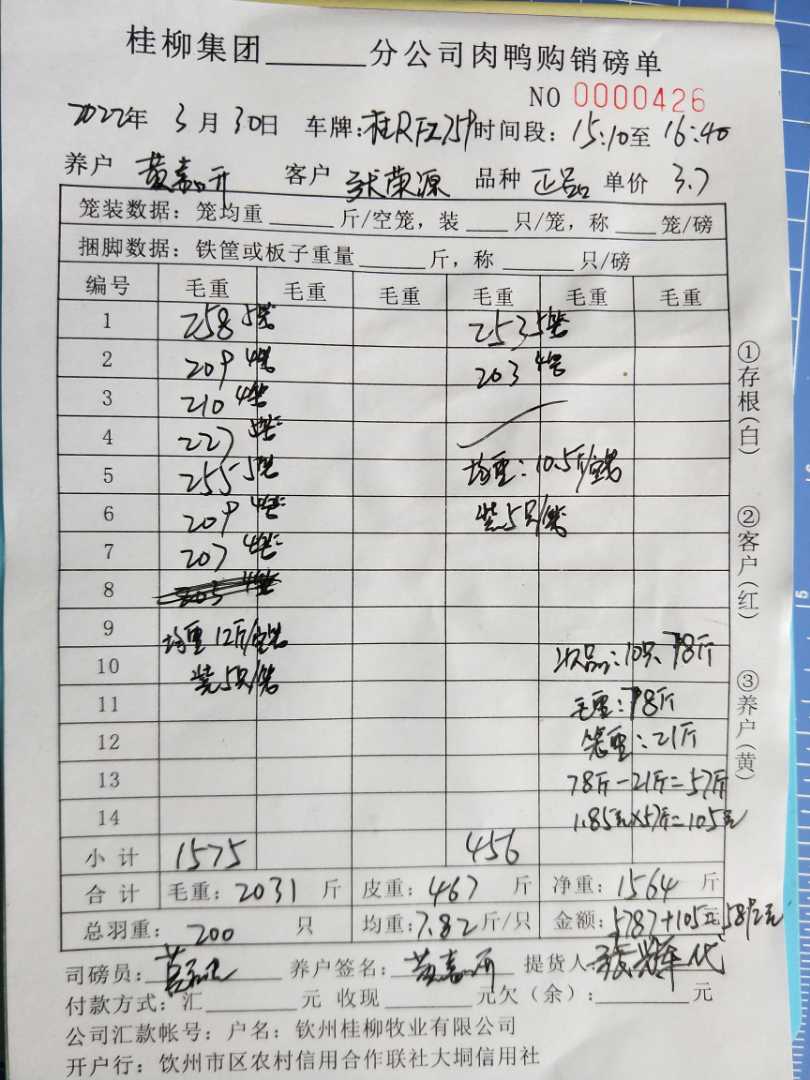 桂柳集团______分公司肉鸭购销磅单
NO 0000426
2022年 3月30日 车牌: 时间段: 15:10至 16:40
养户 黄嘉 客户 张荣源 品种 正品 单价 3.7
笼装数据: 笼均重 _____ 斤/空笼, 装 ___ 只/笼, 称 ___ 笼/磅
捆脚数据: 铁筐或板子重量 _____ 斤, 称 _____ 只/磅
编号 毛重 毛重 毛重 毛重 毛重 毛重
1 258 5笼 253 5笼
2 209 4笼 203 4笼
3 210 4笼
4 227
5 255 5笼 均重: 10.5斤/空笼
6 209 4笼 装5只/笼
7 207 4笼
8
9 均重 12斤/空笼
10 装5只/笼 次品: 10只、78斤
11 毛重: 78斤
12 笼重: 21斤
13 78斤-21斤=57斤
14 1.85元×57斤=105元
小计 1575 456
合计 毛重: 2031 斤 皮重: 467 斤 净重: 1564 斤
总羽重: 200 只 均重: 7.82 斤/只 金额: 5787+105元 5892元
司磅员: 养户签名: 黄嘉 提货人: 代
付款方式: 汇______元 收现______元欠(余):______元
公司汇款帐号: 户名: 钦州桂柳牧业有限公司
开户行: 钦州市区农村信用合作联社大垌信用社
①存根(白)
②客户(红)
③养户(黄)